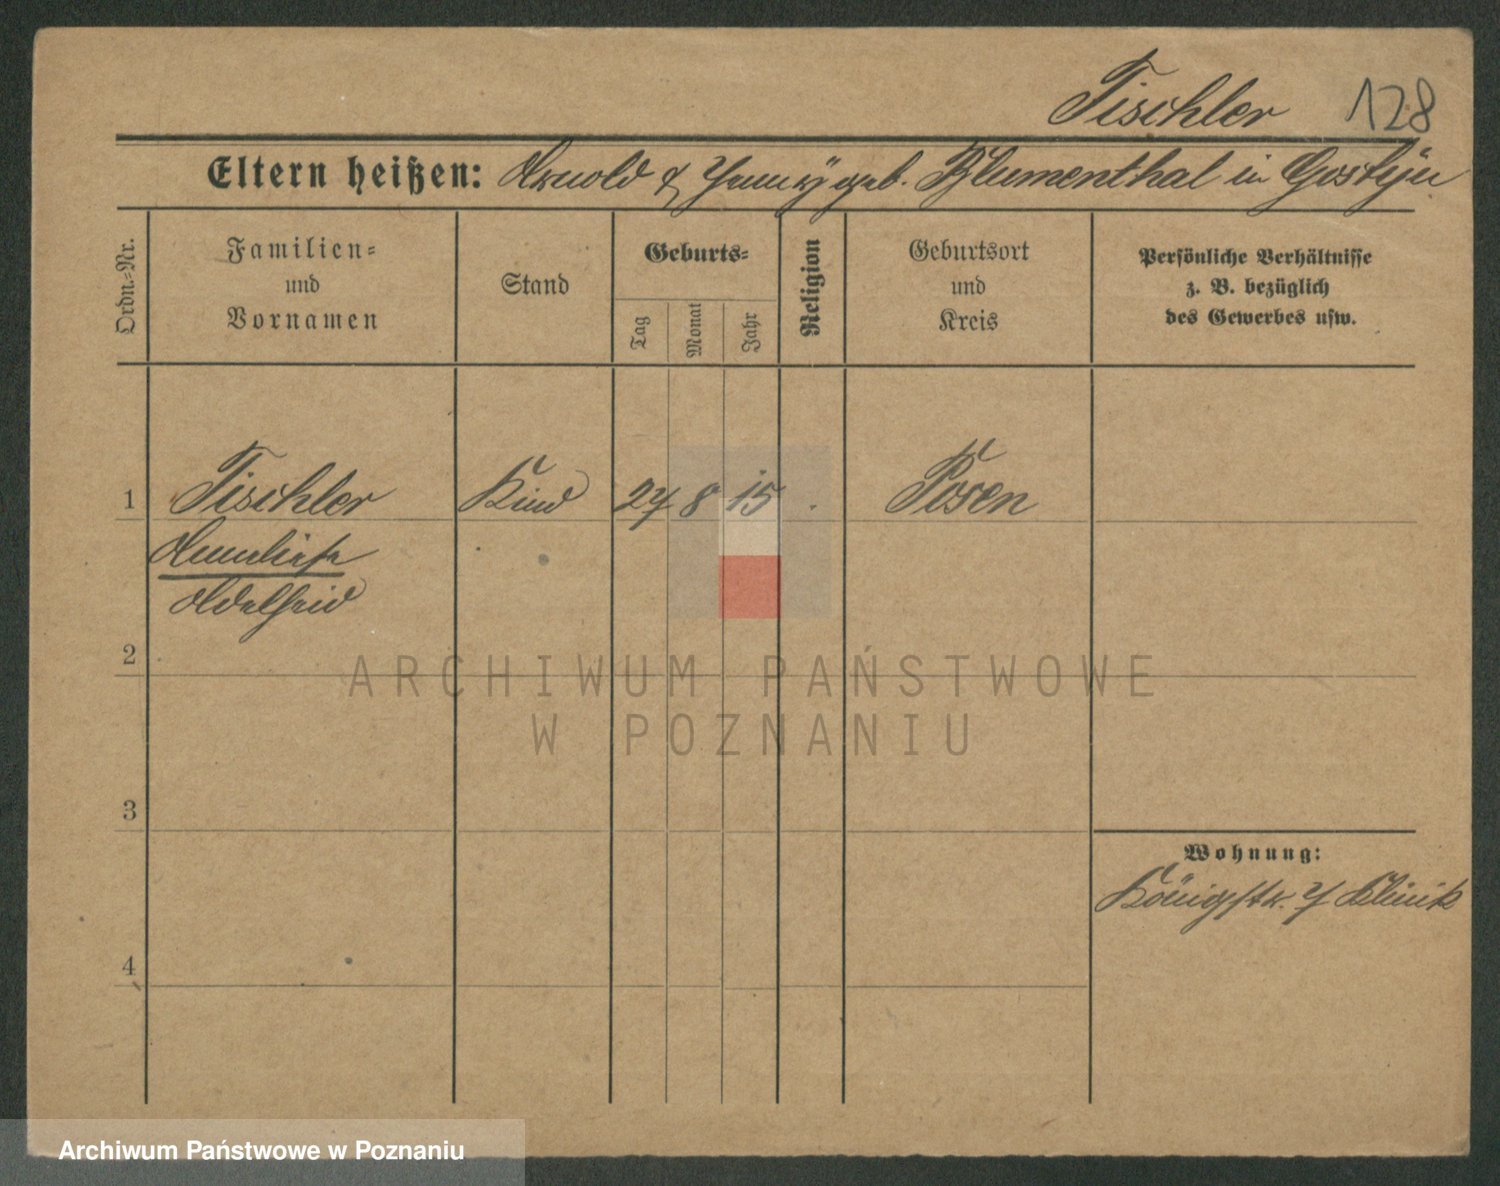 Tischler 128
Eltern heißen: Arnold & Jenny geb. Blumenthal in Gostyn
Ordn.-Nr.
Familien-
und
Vornamen
Stand
Geburts-
Tag
Monat
Jahr
Religion
Geburtsort
und
Kreis
Persönliche Verhältnisse
z. B. bezüglich
des Gewerbes usw.
1 Tischler Kind 24 8 15 . Posen
Anneliese
Adelheid
2
ARCHIWUM PAŃSTWOWE
W POZNANIU
3
Wohnung:
Königstr. 7 Klinik
4
Archiwum Państwowe w Poznaniu